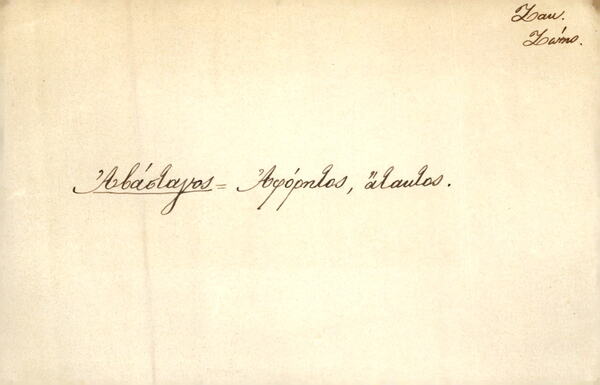 Ζακ.
Ζώης.
Ἀβάσταγος = Ἀφόρητος, ἄτακτος.